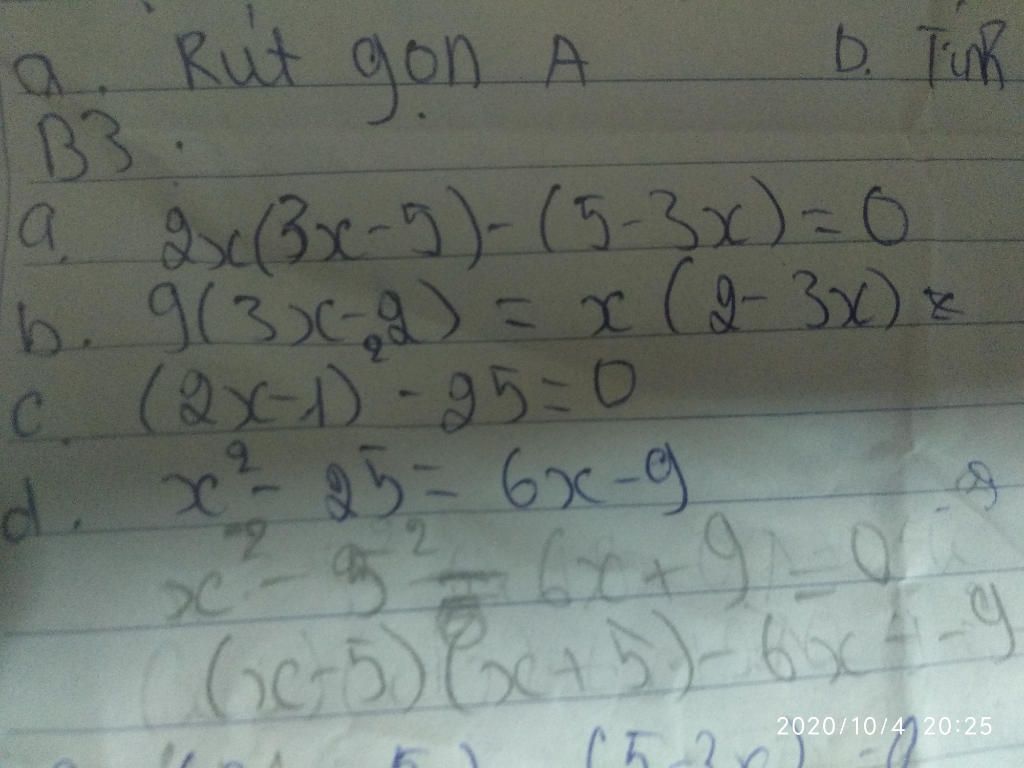 a. Rút gọn A b. Tính
B3.
a. 2x(3x-5)-(5-3x)=0
b. 9(3x-2) = x(2-3x)
c. (2x-1)² - 25=0
d. x² - 25 = 6x-9
x² - 5² - 6x + 9 = 0
(x-5)(x+5) - 6x - 9
2020/10/4 20:25